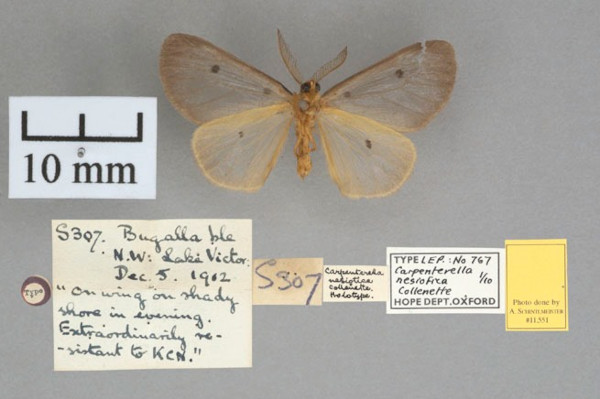 10 mm
S307. Bugalla Isle
N.W: Lake Victor.
Dec. 5. 1912
"On wing" on shady
shore in evening.
Extraordinarily re-
-sistant to KCN."
S307
Carpenterella
nesiotica
Collenette.
Holotype.
TYPE LEP.: No 767
Carpenterella 1/10
nesiotica
Collenette
HOPE DEPT. OXFORD
Photo done by
A. SCHINTLMEISTER
#11,551